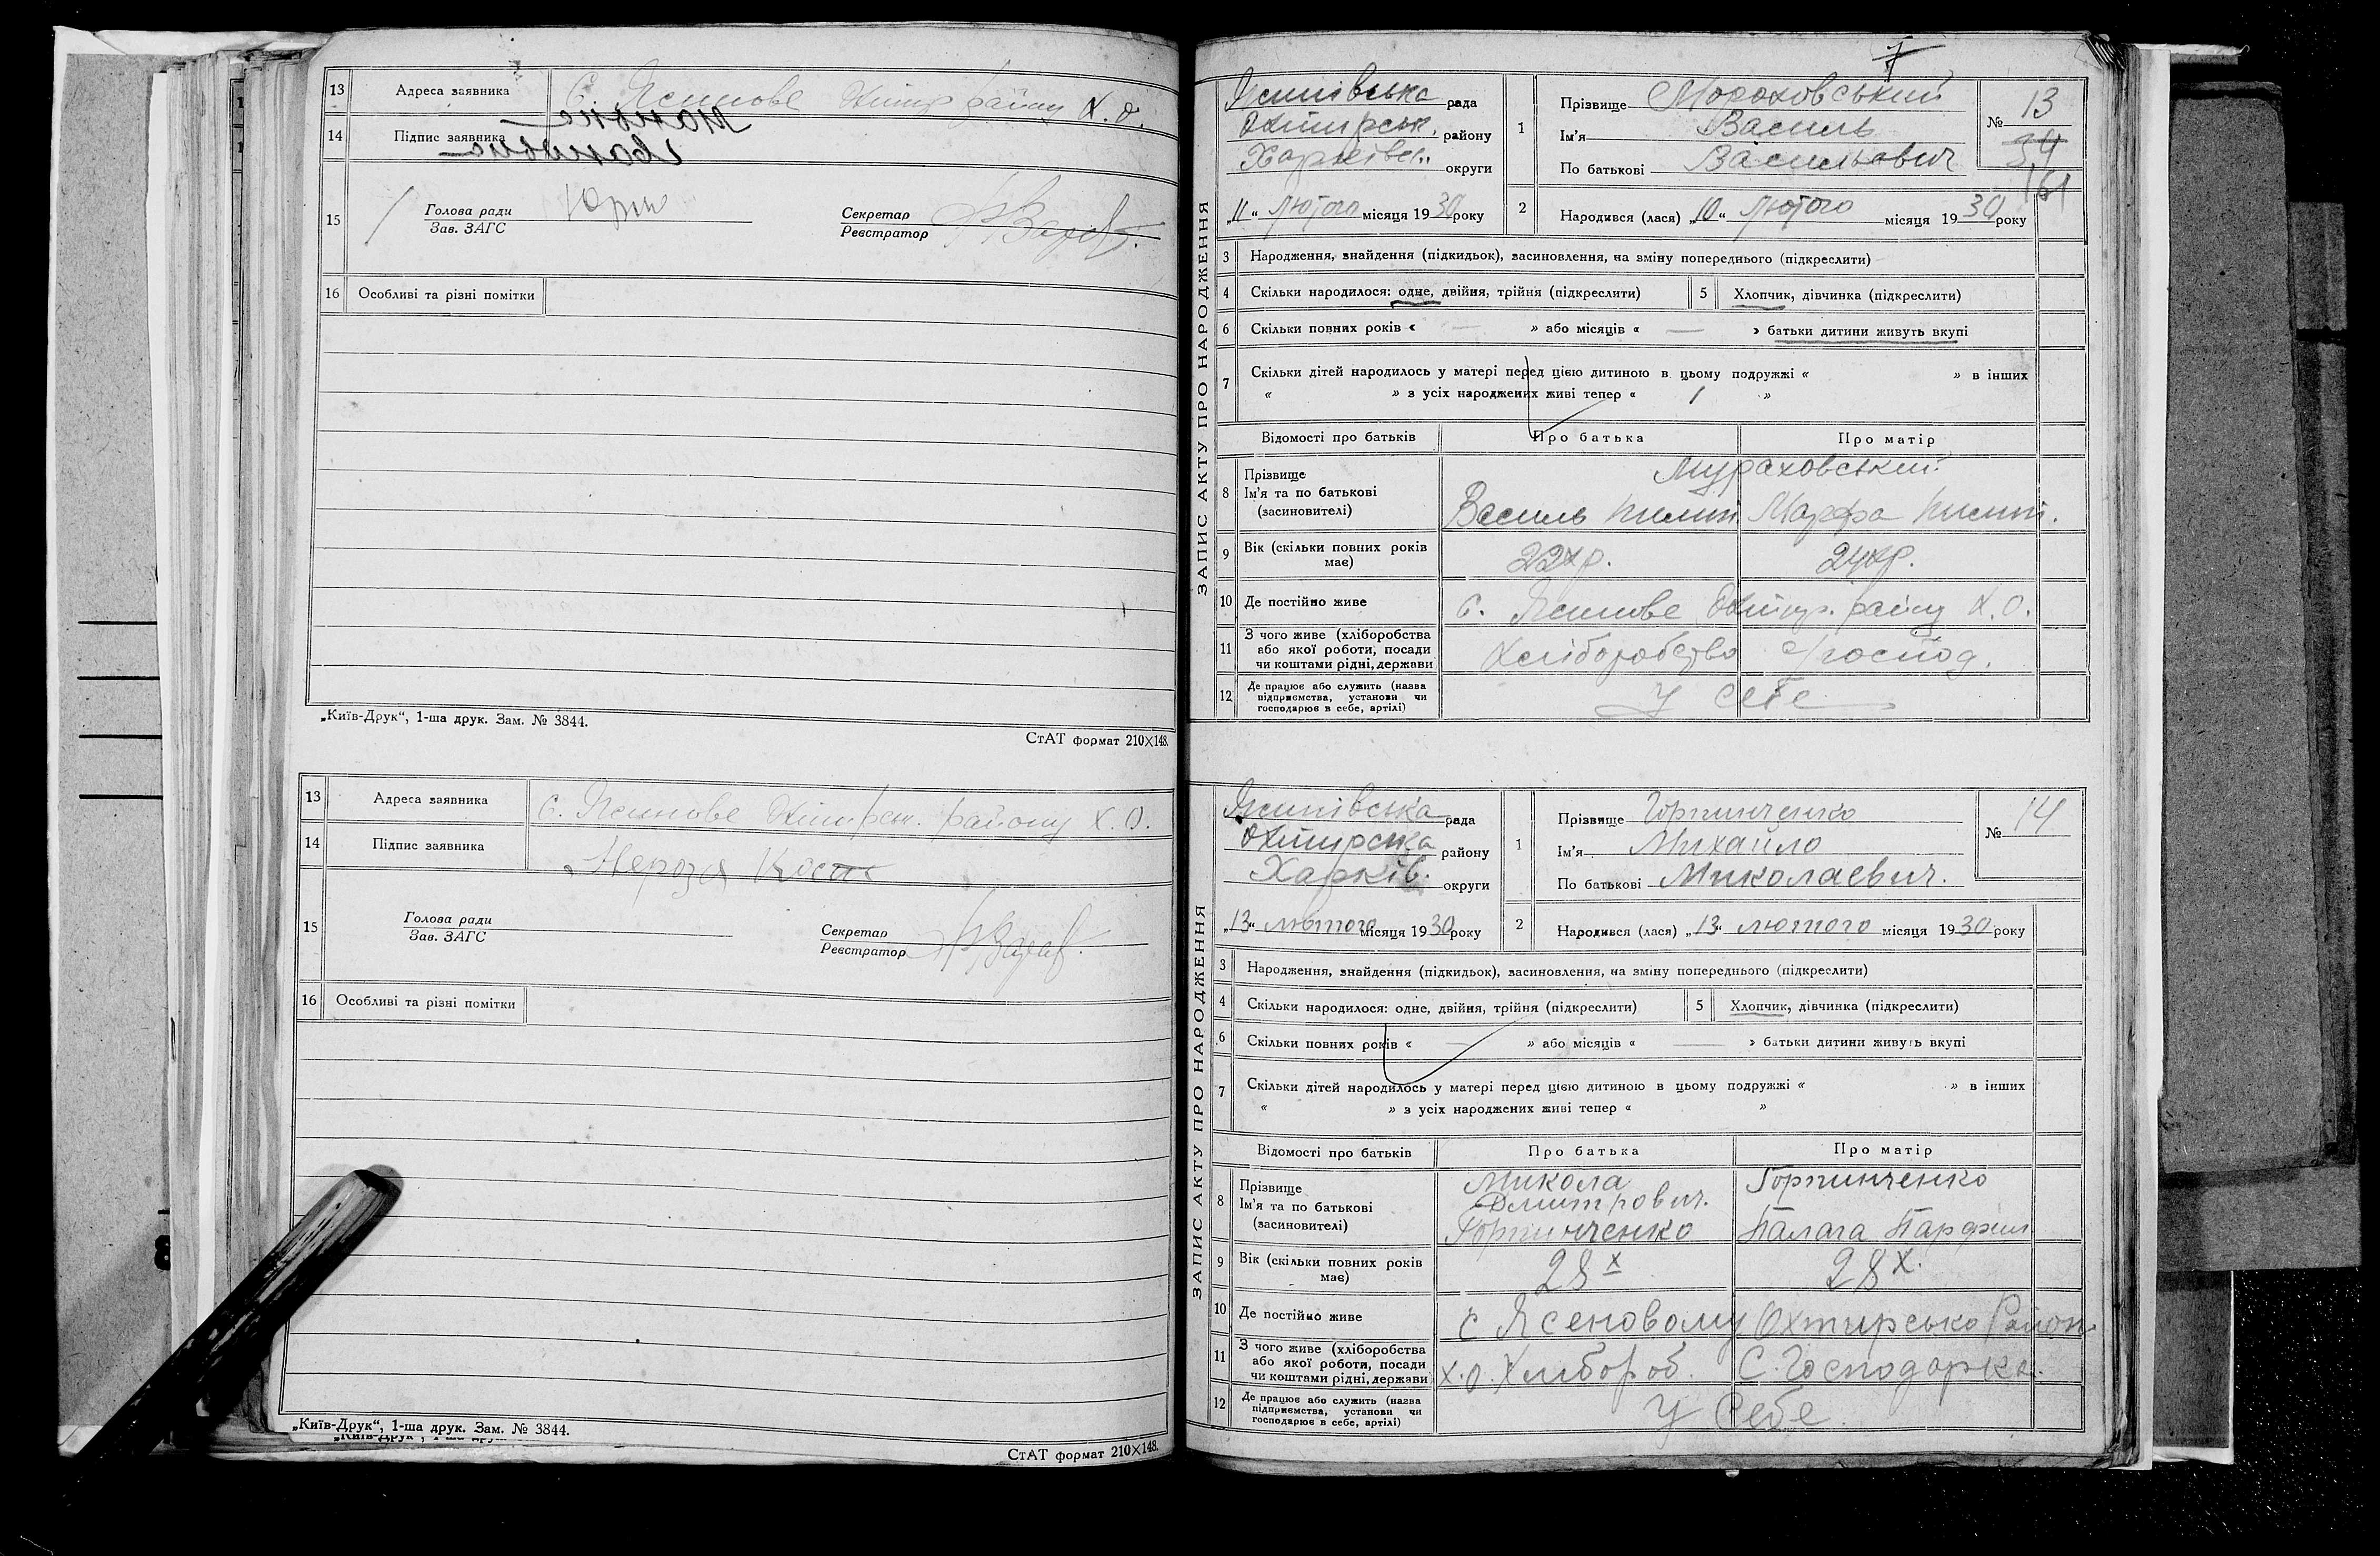 13 Адреса заявника С. Ясенове Охтир. району Х. О.
14 Підпис заявника
15 Голова ради
Зав. ЗАГС
Секретар
Реєстратор
16 Особливі та різні помітки
„Київ-Друк“, 1-ша друк. Зам. № 3844.
СтАТ формат 210×148.
13 Адреса заявника С. Ясенове Охтирськ. району Х. О.
14 Підпис заявника
15 Голова ради
Зав. ЗАГС
Секретар
Реєстратор
16 Особливі та різні помітки
„Київ-Друк“, 1-ша друк. Зам. № 3844.
СтАТ формат 210×148.
7
ЗАПИС АКТУ ПРО НАРОДЖЕННЯ
рада
Охтирськ. району
Харківськ. округи
„11“ Лютого місяця 1930 року
1 Прізвище Мороховський
Ім’я Василь
По батькові Васильович
№ 13
34
161
2 Народився (лася) „10“ Лютого місяця 1930 року
3 Народження, знайдення (підкидьок), засиновлення, на зміну попереднього (підкреслити)
4 Скільки народилося: одне, двійня, трійня (підкреслити) 5 Хлопчик, дівчинка (підкреслити)
6 Скільки повних років « — » або місяців « — » батьки дитини живуть вкупі
7 Скільки дітей народилось у матері перед цією дитиною в цьому подружжі « » в інших
« » з усіх народжених живі тепер « 1 »
Відомості про батьків Про батька Про матір
8 Прізвище
Ім’я та по батькові
(засиновителі)
Мураховський
Василь Марфа
9 Вік (скільки повних років має) 22 хр. 24 хр.
10 Де постійно живе с. Ясенове Охтир. району Х. О.
11 З чого живе (хліборобства
або якої роботи, посади
чи коштами рідні, держави
Хліборобство с/господ.
12 Де працює або служить (назва
підприємства, установи чи
господарює в себе, артілі)
У себе
ЗАПИС АКТУ ПРО НАРОДЖЕННЯ
рада
Охтирська району
Харків. округи
„13“ лютого місяця 1930 року
1 Прізвище Горпинченко
Ім’я Михайло
По батькові Миколаевич.
№ 14
2 Народився (лася) „13“ лютого місяця 1930 року
3 Народження, знайдення (підкидьок), засиновлення, на зміну попереднього (підкреслити)
4 Скільки народилося: одне, двійня, трійня (підкреслити) 5 Хлопчик, дівчинка (підкреслити)
6 Скільки повних років « — » або місяців « — » батьки дитини живуть вкупі
7 Скільки дітей народилось у матері перед цією дитиною в цьому подружжі « » в інших
« » з усіх народжених живі тепер « »
Відомості про батьків Про батька Про матір
8 Прізвище
Ім’я та по батькові
(засиновителі)
Микола
Дмитрович.
Горпинченко
Горпинченко
Палага Парфил
9 Вік (скільки повних років має) 28 х 28 х.
10 Де постійно живе с Ясеновому Охтирсько Район
11 З чого живе (хліборобства
або якої роботи, посади
чи коштами рідні, держави
х. о. Хлибороб. С. Господарка.
12 Де працює або служить (назва
підприємства, установи чи
господарює в себе, артілі)
У Себе.